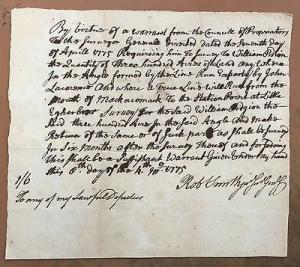 By Virtue of a Warrant from the Councile of Proprietors
To the Surveyor Generall Directed Dated the Seventh Day
of Aprill 1775 Requireing him To Survey to William
the Quantity of Three hundred Acres of Land any Where
In the Angle formed by the Line Run Exparte by John
Lawrence And where a True Line will Run from the
Mouth of to the Station Point at Little
Eggharbour Survey for the Said William
three hundred Acres In the Said Angle and Make
Return of the Same or of Such part as Shall be Surveyd
In Six Months after the Survey Thereof and for So doing
This Shall be a Suffitient Warrant Given Under My hand
this Day of the 4th 1775
1/6
To any of my Lawfull Deputies